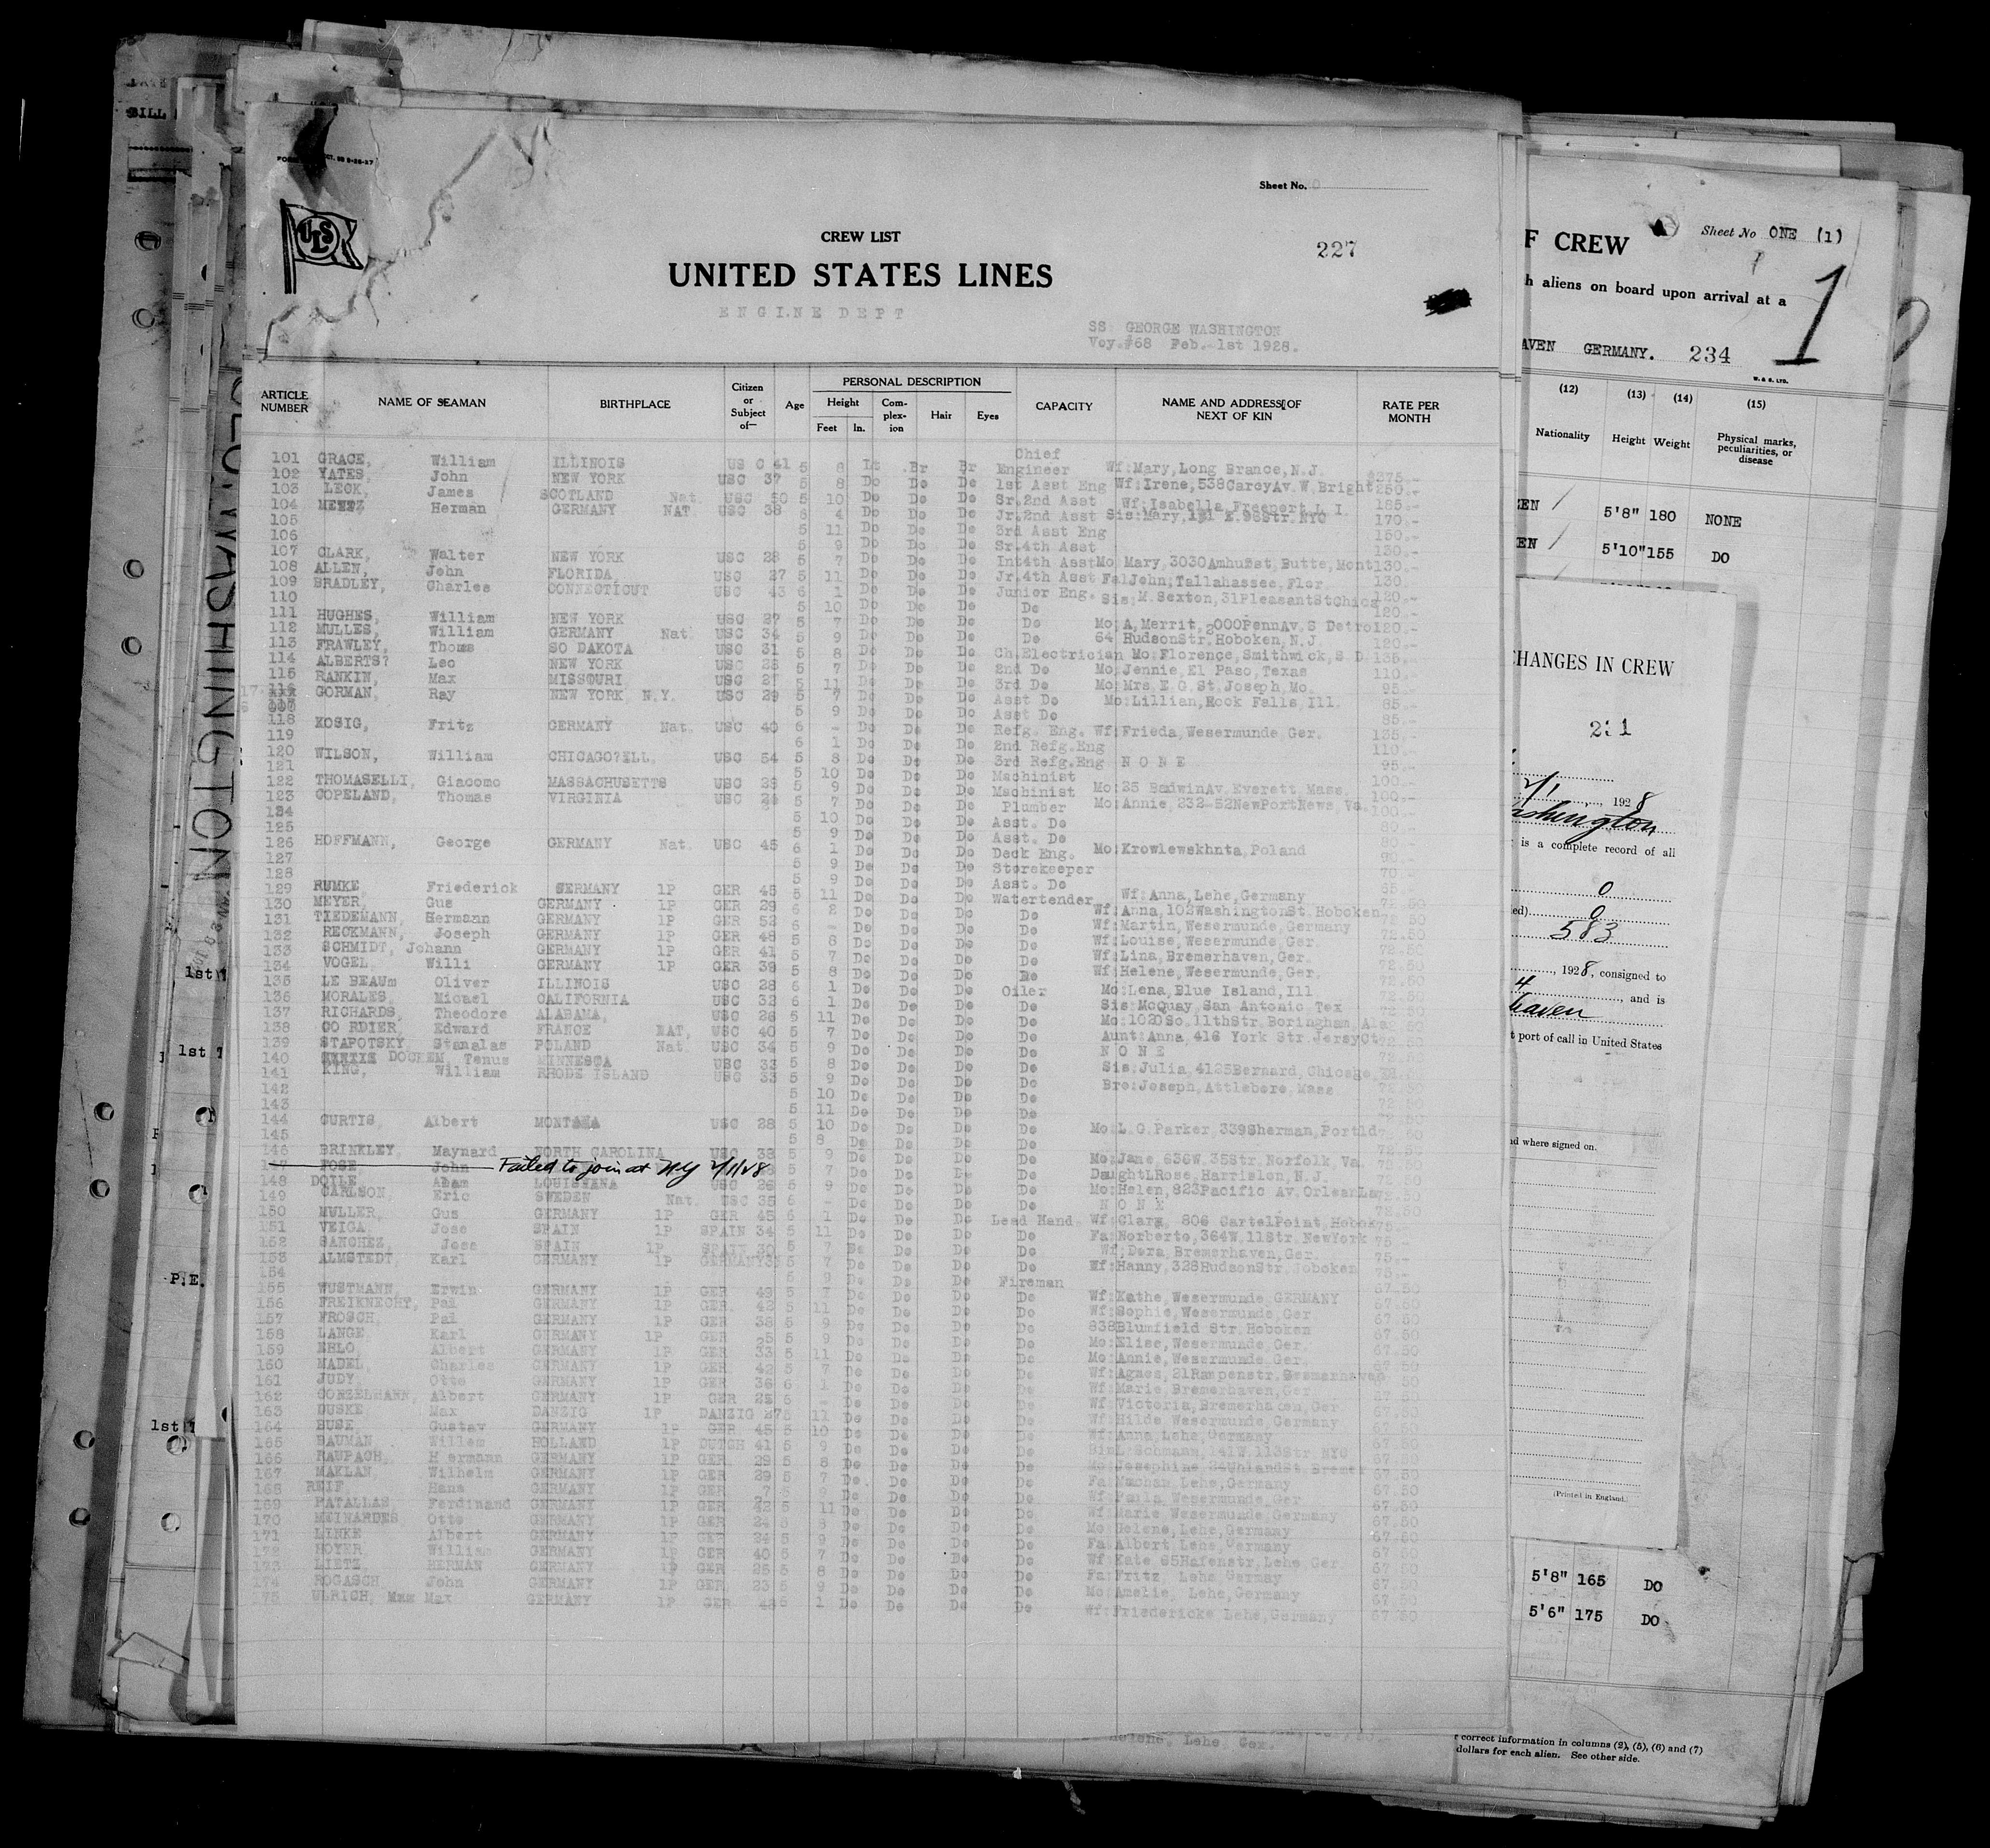 Sheet No.
ULS
CREW LIST
227
UNITED STATES LINES
ENGINE DEPT
SS GEORGE WASHINGTON
Voy.#68 Feb. 1st 1928.
ARTICLE NUMBER NAME OF SEAMAN BIRTHPLACE Citizen or Subject of— Age PERSONAL DESCRIPTION Height Feet In. Com-plex-ion Hair Eyes CAPACITY NAME AND ADDRESS OF NEXT OF KIN RATE PER MONTH
101 GRACE, William ILLINOIS US C 41 5 8 Lt Br Br Chief Engineer Wf:Mary,Long Brance,N.J.
102 YATES, John NEW YORK USC 37 5 8 Do Do Do 1st Asst Eng Wf:Irene,538CareyAv.W.Bright 250.-
103 LECK, James SCOTLAND Nat. USC 50 5 10 Do Do Do Sr.2nd Asst Wf:Isabella Freeport L I. 185.-
104 Herman GERMANY NAT. USC 38 6 4 Do Do Do Jr.2nd Asst Sis:Mary, E.96Str.NYC 170.-
105 5 11 Do Do Do 3rd Asst Eng 150.-
106 5 9 Do Do Do Sr.4th Asst 130.-
107 CLARK, Walter NEW YORK USC 28 5 7 Do Do Do Int4th Asst Mo Mary,3030Amhurst,Butte,Mont 130.-
108 ALLEN, John FLORIDA USC 27 5 11 Do Do Do Jr.4th Asst Fa:John;Tallahassee,Flor 130.
109 BRADLEY, Charles CONNECTICUT USC 43 6 1 Do Do Do Junior Eng. Sis:M.Sexton,31PleasantStChica 120.-
110 5 10 Do Do Do Do 120.-
111 HUGHES, William NEW YORK USC 27 5 7 Do Do Do Do Mo:A,Merrit,2000PennAv.S Detroi 120.-
112 MULLES, William GERMANY Nat. USC 34 5 9 Do Do Do Do 64 HudsonStr.Hoboken,N.J. 120.-
113 FRAWLEY, Thoms SO DAKOTA USC 31 5 8 Do Do Do Ch.Electrician Mo:Florence,Smithwick,S D. 135.-
114 ALBERTS? Leo NEW YORK USC 28 5 7 Do Do Do 2nd Do Mo:Jennie,El Paso,Texas 110.-
115 RANKIN, Max MISSOURI USC 21 5 11 Do Do Do 3rd Do Mo:Mrs.E G.St.Joseph,Mo. 95.-
116 GORMAN, Ray NEW YORK N.Y. USC 29 5 7 Do Do Do Asst Do Mo:Lillian,Rock Falls,Ill. 85.-
117 5 9 Do Do Do Asst Do 85.-
118 KOSIG, Fritz GERMANY Nat. USC 40 6 - Do Do Do Refg. Eng. Wf:Frieda,Wesermunde,Ger. 135.-
119 6 1 Do Do Do 2nd Refg.Eng 110.-
120 WILSON, William CHICAGO?ELL, USC 54 5 8 Do Do Do 3rd Refg.Eng NONE 95.-
121 5 10 Do Do Do Machinist 100.-
122 THOMASELLI, Giacomo MASSACHUSETTS USC 28 5 9 Do Do Do Machinist Mo:25 BaldwinAv.Everett,Mass. 100.-
123 COPELAND, Thomas VIRGINIA USC 24 5 7 Do Do Do Plumber Mo:Annie,232-52NewPortNews,Va. 100.-
124 5 10 Do Do Do Asst. Do
125 5 9 Do Do Do Asst. Do
126 HOFFMANN, George GERMANY Nat. USC 45 6 1 Do Do Do Deck Eng. Mo:Krowlewskhnta,Poland 90.-
127 5 9 Do Do Do Storekeeper 70.-
128 5 9 Do Do Do Asst. Do 65.-
129 RUMKE Friederick GERMANY 1P GER 45 5 11 Do Do Do Watertender Wf:Anna,Lehe,Germany 72.50
130 MEYER, Gus GERMANY 1P GER 29 6 2 Do Do Do Do Wf:Anna,102WashingtonSt.Hoboken
131 TIEDEMANN, Hermann GERMANY 1P GER 52 6 - Do Do Do Do Wf:Martin,Wesermunde,Germany 72.50
132 RECKMANN, Joseph GERMANY 1P GER 45 5 8 Do Do Do Do Wf:Louise,Wesermunde,Ger. 72.50
133 SCHMIDT, Johann GERMANY 1P GER 41 5 7 Do Do Do Do Wf:Lina,Bremerhaven,Ger. 72.50
134 VOGEL, Willi GERMANY 1P GER 39 5 8 Do Do Do Do Wf:Helene,Wesermunde,Ger. 72.50
135 LE BEAUm Oliver ILLINOIS USC 28 6 1 Do Do Do Oiler Mo:Lena,Blue Island,Ill 72.50
136 MORALES, Micael CALIFORNIA USC 32 6 1 Do Do Do Do Sis:McQuay San Antonio Tex 72.50
137 RICHARDS, Theodore ALABAMA, USC 26 5 11 Do Do Do Do Mo:1020So.11thStr.Boringham,Ala
138 CO RDIER, Edward FRANCE NAT, USC 40 5 7 Do Do Do Do Aunt:Anna,416 York Str.JersyCt
139 STAPOTSKY Stanalas POLAND Nat. USC 34 5 9 Do Do Do Do NONE
140 DOUREM, Tenus MINNESOTA USC 33 5 8 Do Do Do Do Sis:Julia,4125Bernard,Chicago
141 KING, William RHODE ISLAND USC 33 5 9 Do Do Do Do Bro:Joseph,Attlebore,Mass 72.50
142 5 10 Do Do Do Do
143 5 11 Do Do Do Do 72.50
144 CURTIS, Albert MONTANA USC 28 5 10 Do Do Do Do Mo:L.C.Parker,339Sherman,Portld
145 5 8 Do Do Do Do
146 BRINKLEY, Maynard NORTH CAROLINA USC 38 5 9 Do Do Do Do Mo:Jane,636W.35Str.Norfolk,Va
147 John Failed to join at NY 2/1/28 5 7 Do Do Do Do
148 DOYLE Adam LOUISIANA USC 26 5 9 Do Do Do Do Mo:Helen,823Pacific Av.Orlean
149 CARLSON, Eric SWEDEN Nat. USC 35 6 - Do Do Do Do NONE 72.50
150 MULLER, Gus GERMANY 1P GER 45 6 1 Do Do Do Lead Hand Wf:Clara, 806 CartelPoint,Hobok 75.-
151 VEIGA, Jose SPAIN 1P SPAIN 34 5 11 Do Do Do Do Fa:Norberto,364W.11Str.NewYork 75.-
152 SANCHEZ, Jose SPAIN 1P SPAIN 30 5 7 Do Do Do Do Wf:Dora,Bremerhaven,Ger. 75.-
153 ALMSTEDT, Karl GERMANY 1P GERMANY 5 7 Do Do Do Do Wf:Hanny,328HudsonStr,Joboken 75.-
154 5 9 Do Do Do Fireman 67.50
155 WUSTMANN Erwin GERMANY 1P GER 49 5 7 Do Do Do Do Wf:Kathe,Wesermunde GERMANY 67.50
156 FREIKNECHT, Pal GERMANY 1P GER 42 5 11 Do Do Do Do Wf:Sophie,Wesermunde,Ger 67.50
157 FROSCH, Pal GERMANY 1P GER 38 5 9 Do Do Do Do 838Blumfield Str.Hoboken 67.50
158 LANGE Karl GERMANY 1P GER 25 5 9 Do Do Do Do Mo:Elise,Wesermunde,Ger. 67.50
159 Albert GERMANY 1P GER 33 5 11 Do Do Do Do Mo:Annie,Wesermunde Ger. 67.50
160 NADEL, Charles GERMANY 1P GER 42 5 7 Do Do Do Do Wf:Agnes,21Rampenstr.
161 JUDY, Otto GERMANY 1P GER 36 6 1 Do Do Do Do Wf:Marie,Bremerhaven,Ger
162 Albert GERMANY 1P GER Do Do Do Do Wf:Victoria,Bremerhaven,Ger
163 DUSKE Max DANZIG 1P DANZIG 27 5 11 Do Do Do Do Wf:Hilde Wesermunde,Germany
164 BUSE Gustav GERMANY 1P GER 45 5 10 Do Do Do Do Wf:Anna,Lehe,Germany
165 BAUMAN Willem HOLLAND 1P DUTCH 41 5 9 Do Do Do Do 141W.113Str NYC 67.50
166 RAUPACH, H ermann GERMANY 1P GER 29 5 8 Do Do Do Do Mo:Josephine 24UhlandSt.Bremer
167 MAKLAN Wilhelm GERMANY 1P GER 29 5 7 Do Do Do Do Lehe,Germany 67.50
168 REIF Hans GERMANY 1P GER Do Do Do Do Wf Wesermunde,Ger 67.50
169 PATALLAS Ferdinand GERMANY 1P GER 5 11 Do Do Do Do Wf:Marie Wesermunde,Germany 67.50
170 MEINARDES Otto GERMANY 1P GER 24 5 8 Do Do Do Do Mo:Helene,Lehe,Germany 67.50
171 LINKE Albert GERMANY 1P GER 24 5 9 Do Do Do Do Fa:Albert,Lehe,Germany 67.50
172 HOYER William GERMANY 1P GER 40 5 7 Do Do Do Do Wf:Kate,65Hafenstr,Lehe,Ger. 67.50
173 LIETZ, HERMAN GERMANY 1P GER 25 5 8 Do Do Do Do Fa:Fritz, Lehe Germay 67.50
174 ROGASCH John GERMANY 1P GER 23 5 9 Do Do Do Do Mo:Amelie, Lehe,Germany 67.50
175 ULRICH, Max GERMANY 1P GER 1 Do Do Do Do Wf:Friedericke Lehe,Germany 67.50
F CREW
Sheet No ONE (1)
1
h aliens on board upon arrival at a
AVEN GERMANY. 234
(12) (13) (14) (15)
Nationality Height Weight Physical marks, peculiarities, or disease
ZEN 5'8" 180 NONE
EN 5'10" 155 DO
CHANGES IN CREW
231
2/1, 1928
ashington
is a complete record of all
0
ed) 0
583
, 1928, consigned to
4, and is
haven
t port of call in United States
nd where signed on.
(Printed in England.)
5'8" 165 DO
5'6" 175 DO
correct information in columns (2), (5), (6) and (7)
dollars for each alien. See other side.
WASHINGTON
BILL
1st
1st
P.E.
1st